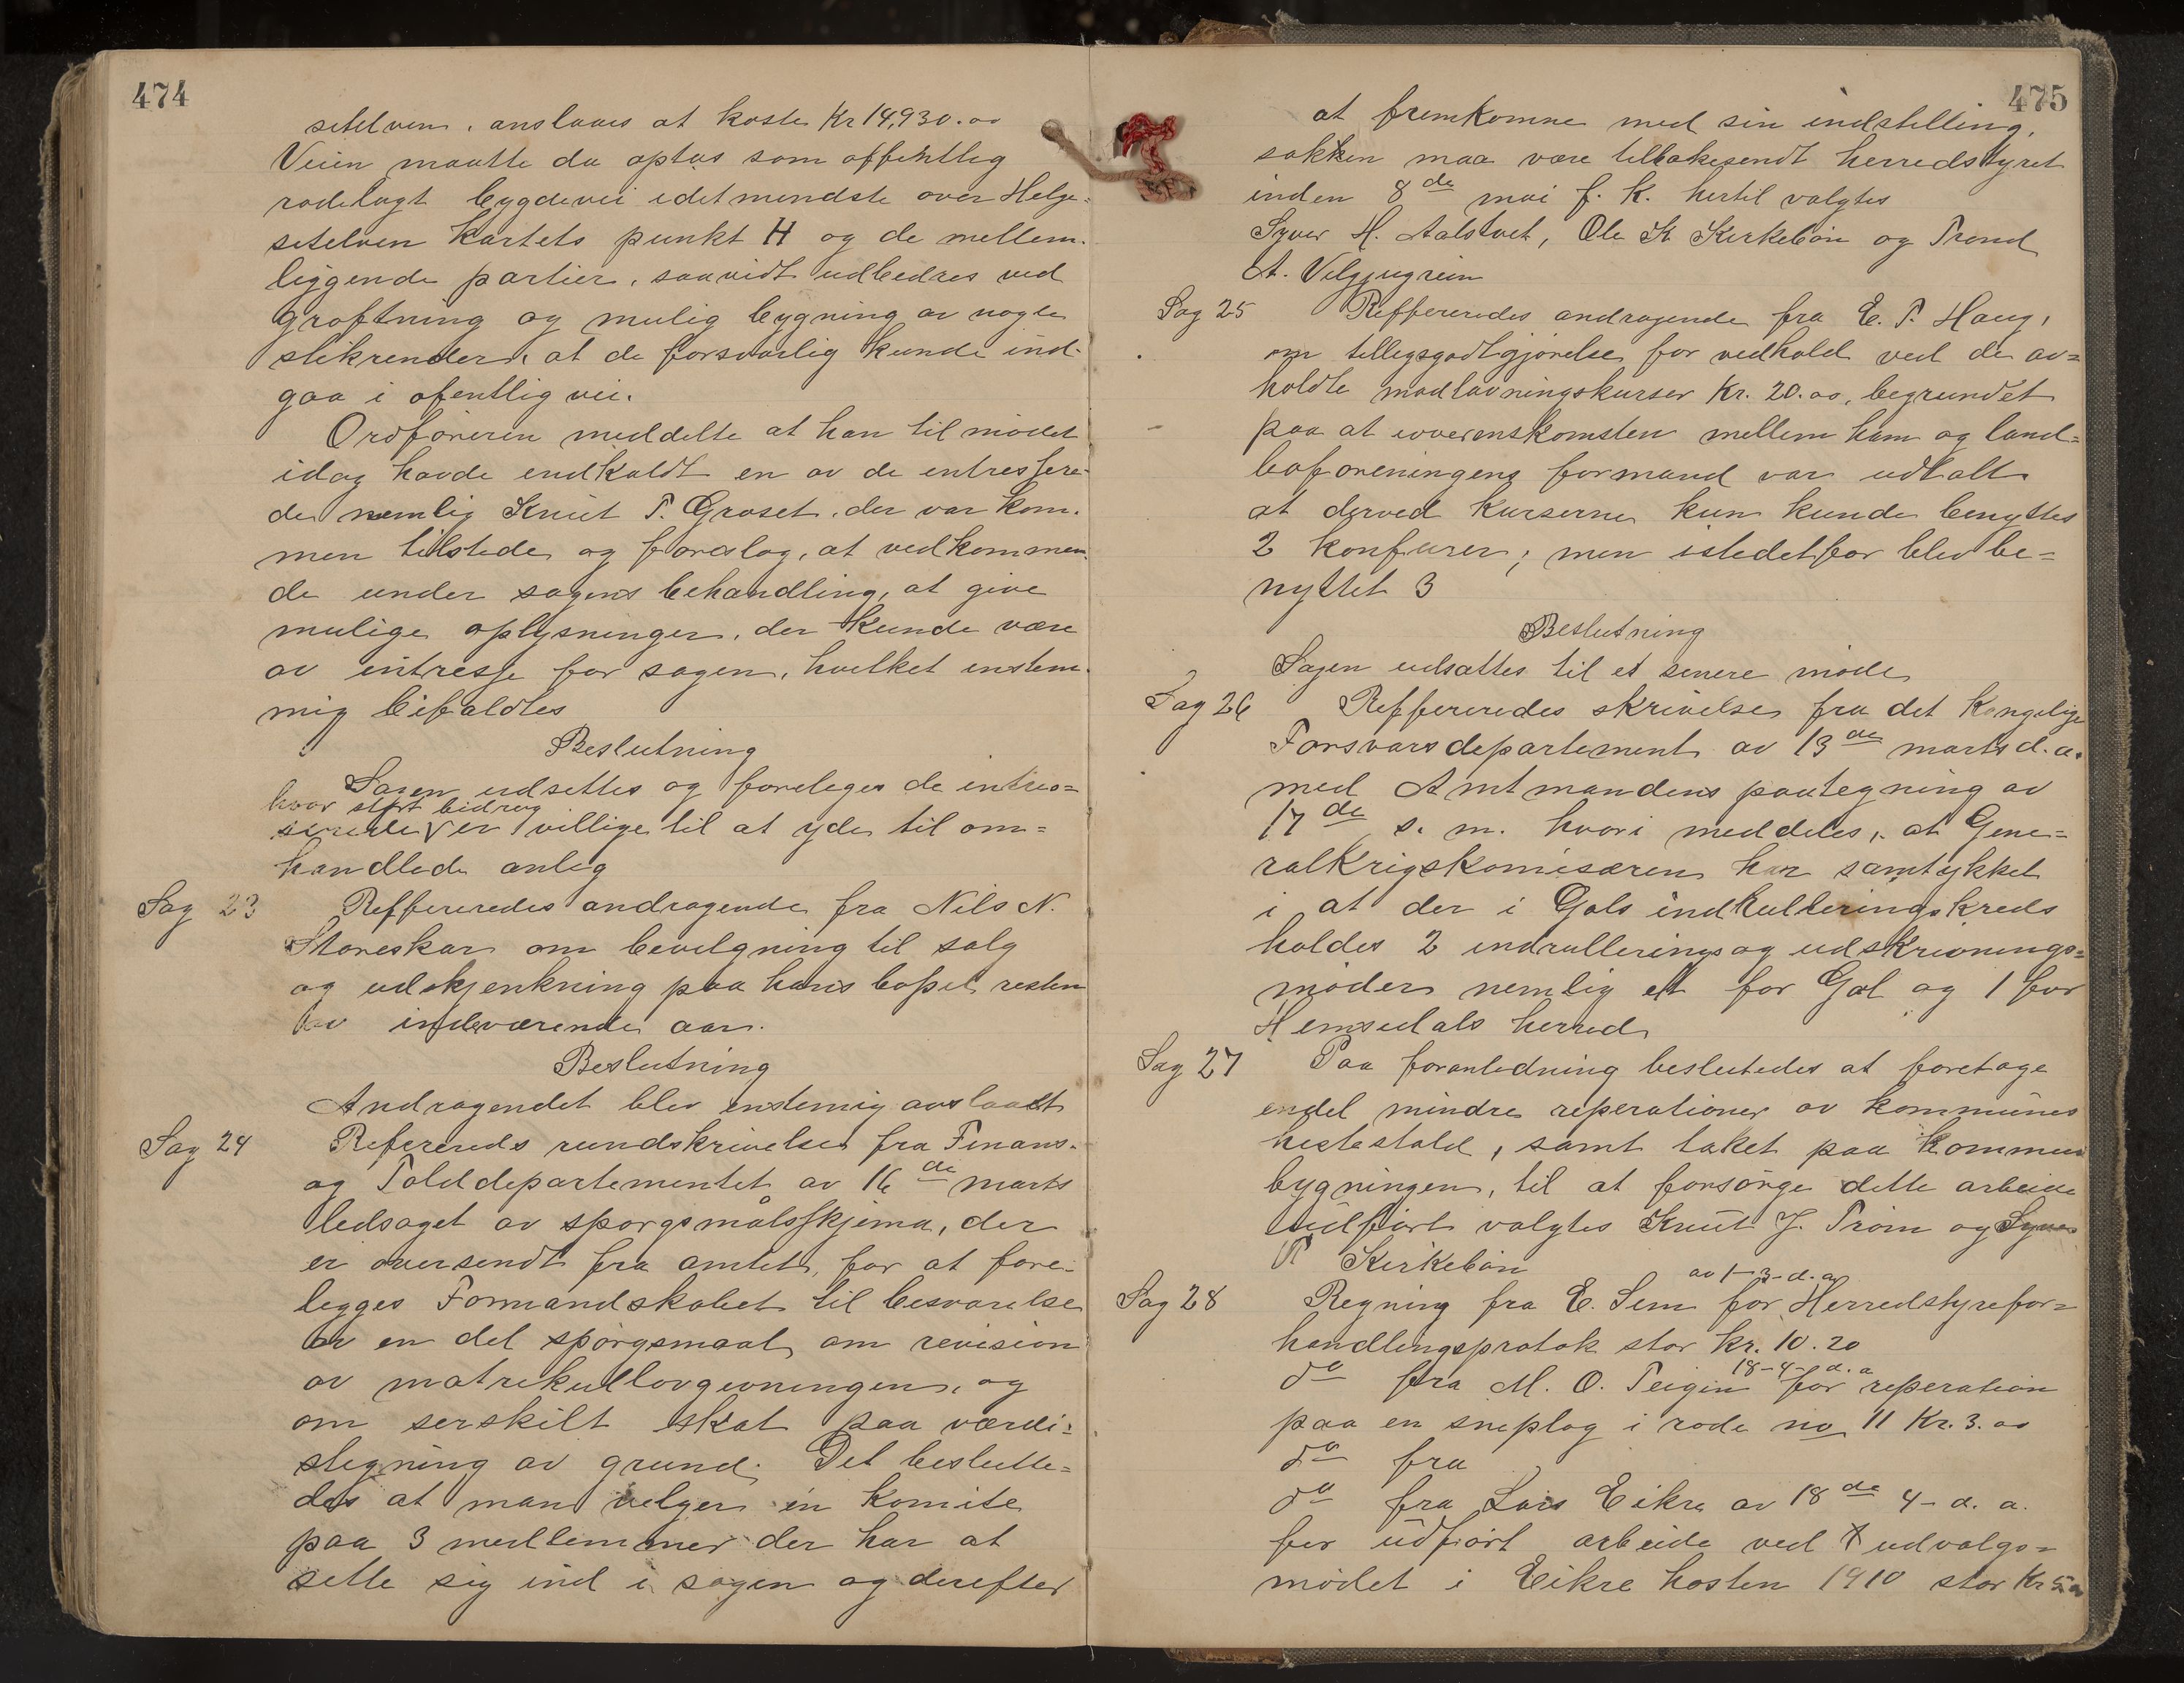 474
setelven, anslaaes at koste Kr 14,930.00
Veien maatte da optas som offentlig
rodelagt bygdevei idetmindste over Helge-
setelven kartets punkt H og de mellem-
liggende partier, saavidt udbedres ved
grøftning og mulig bygning av nogle
stikrender, at de forsvarlig kunde ind-
gaa i ofentlig vei.
Ordføreren meddelte at han til mødet
idag havde indkaldt en av de intressere-
de nemlig Knut T. Grøset, der var kom-
men tilstede og foreslog, at vedkommen-
de under sagens behandling, at give
mulige oplysninger, der kunde være
av intresse for sagen, hvilket enstem-
mig bifaldtes
Beslutning
Sagen udsettes og foreleges de intres-
hvor stort bidrag
serede V er villige til at yde til om-
handlede anleg
Sag 23 Reffereredes andragende fra Nils N.
Storeskar om bevilgning til salg
og udskjenkning paa hans bopel resten
av indeværende aar.
Beslutning
Andragendet blev enstemig avslaaet
Sag 24 Referereds rundskrivelse fra Finans-
og Tolddepartementet av 16de marts
ledsaget av spørgsmålsskjema, der
er oversendt fra amtet, for at fore-
legges Formandskabet til besvarelse
av en del spørgsmaal om revision
av matrikullovgivningen, og
om serskilt skat paa værdi-
stegning av grund. Det beslutte-
des at man velger en komite
paa 3 medlemmer der har at
sette sig ind i sagen og derefter
475
at fremkomme med sin indstelling,
sakken maa være tilbakesendt herredstyret
inden 8de mai f. k. hertil valgtes
Syver H. Aalstvet, Ole K Kirkebøn og Trond
A. Velgjugrein
Sag 25 Reffereredes andragende fra E. T. Haug,
om tillegsgodtgjørelse for vedhold ved de av-
holdte madlavningskurser Kr. 20.00, begrundet
paa at overenskomsten mellem ham og land-
boforeningens formand var udtalt
at derved kurserne kun kunde benyttes
2 komfurer; men istedetfor blev be-
nyttet 3
Beslutning
Sagen udsattes til et senere møde
Sag 26 Reffereredes skrivelse fra det Kongelige
Forsvarsdepartement av 13de marts d. a.
med Amtmandens paategning av
17de s. m. hvori meddeles, at Gene-
ralkrigskomisæren har samtykket
i at der i Gols indrulleringskreds
holdes 2 indrullerings og udskrivnings-
møder nemlig et for Gol og 1 for
Hemsedals herred
Sag 27 Paa foranledning beslutedes at foretage
endel mindre reperationer av kommunes
hestestald, samt taket paa kommun
bygningen, til at forsørge dette arbeide
udført valgtes Knut J. Trøim og Syver
T Kirkebøn
av 1-3-d.a
Sag 28 Regning fra E. Sem for Herredstyrefor-
handlingsprotok stor kr. 10.20
18-4-d.a
do fra M. O. Teigen for reperation
paa en sneplog i rode no 11 Kr. 3.00
do fra
do fra Lars Eikre av 18de 4- d. a.
for udført arbeide ved udvalgs-
mødet i Eikre høsten 1910 stor Kr